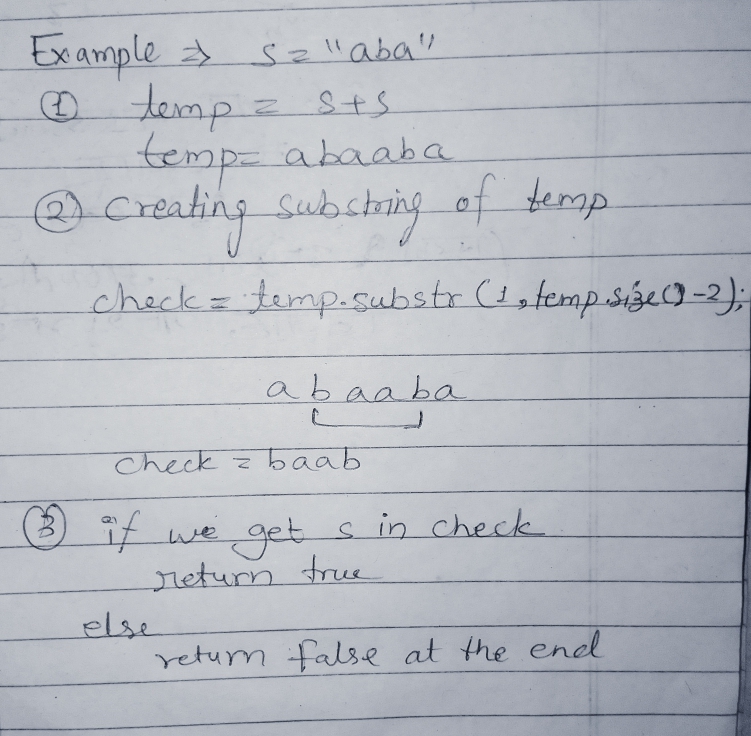 Example ⇒ s = "aba"
① temp = s+s
temp = abaaba
② Creating substring of temp
check = temp.substr(1, temp.size()-2);
abaaba
check = baab
③ if we get s in check
return true
else
return false at the end